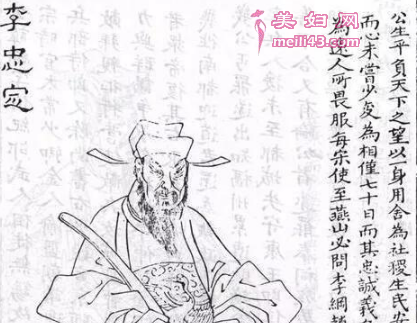 公生平負天下之望以身用舍為社稷生民安
而心未嘗少変為相僅七十日而其忠誠義
為遠人所畏服每宗使至燕山必問李綱
李忠定
美妇网
meili43.com